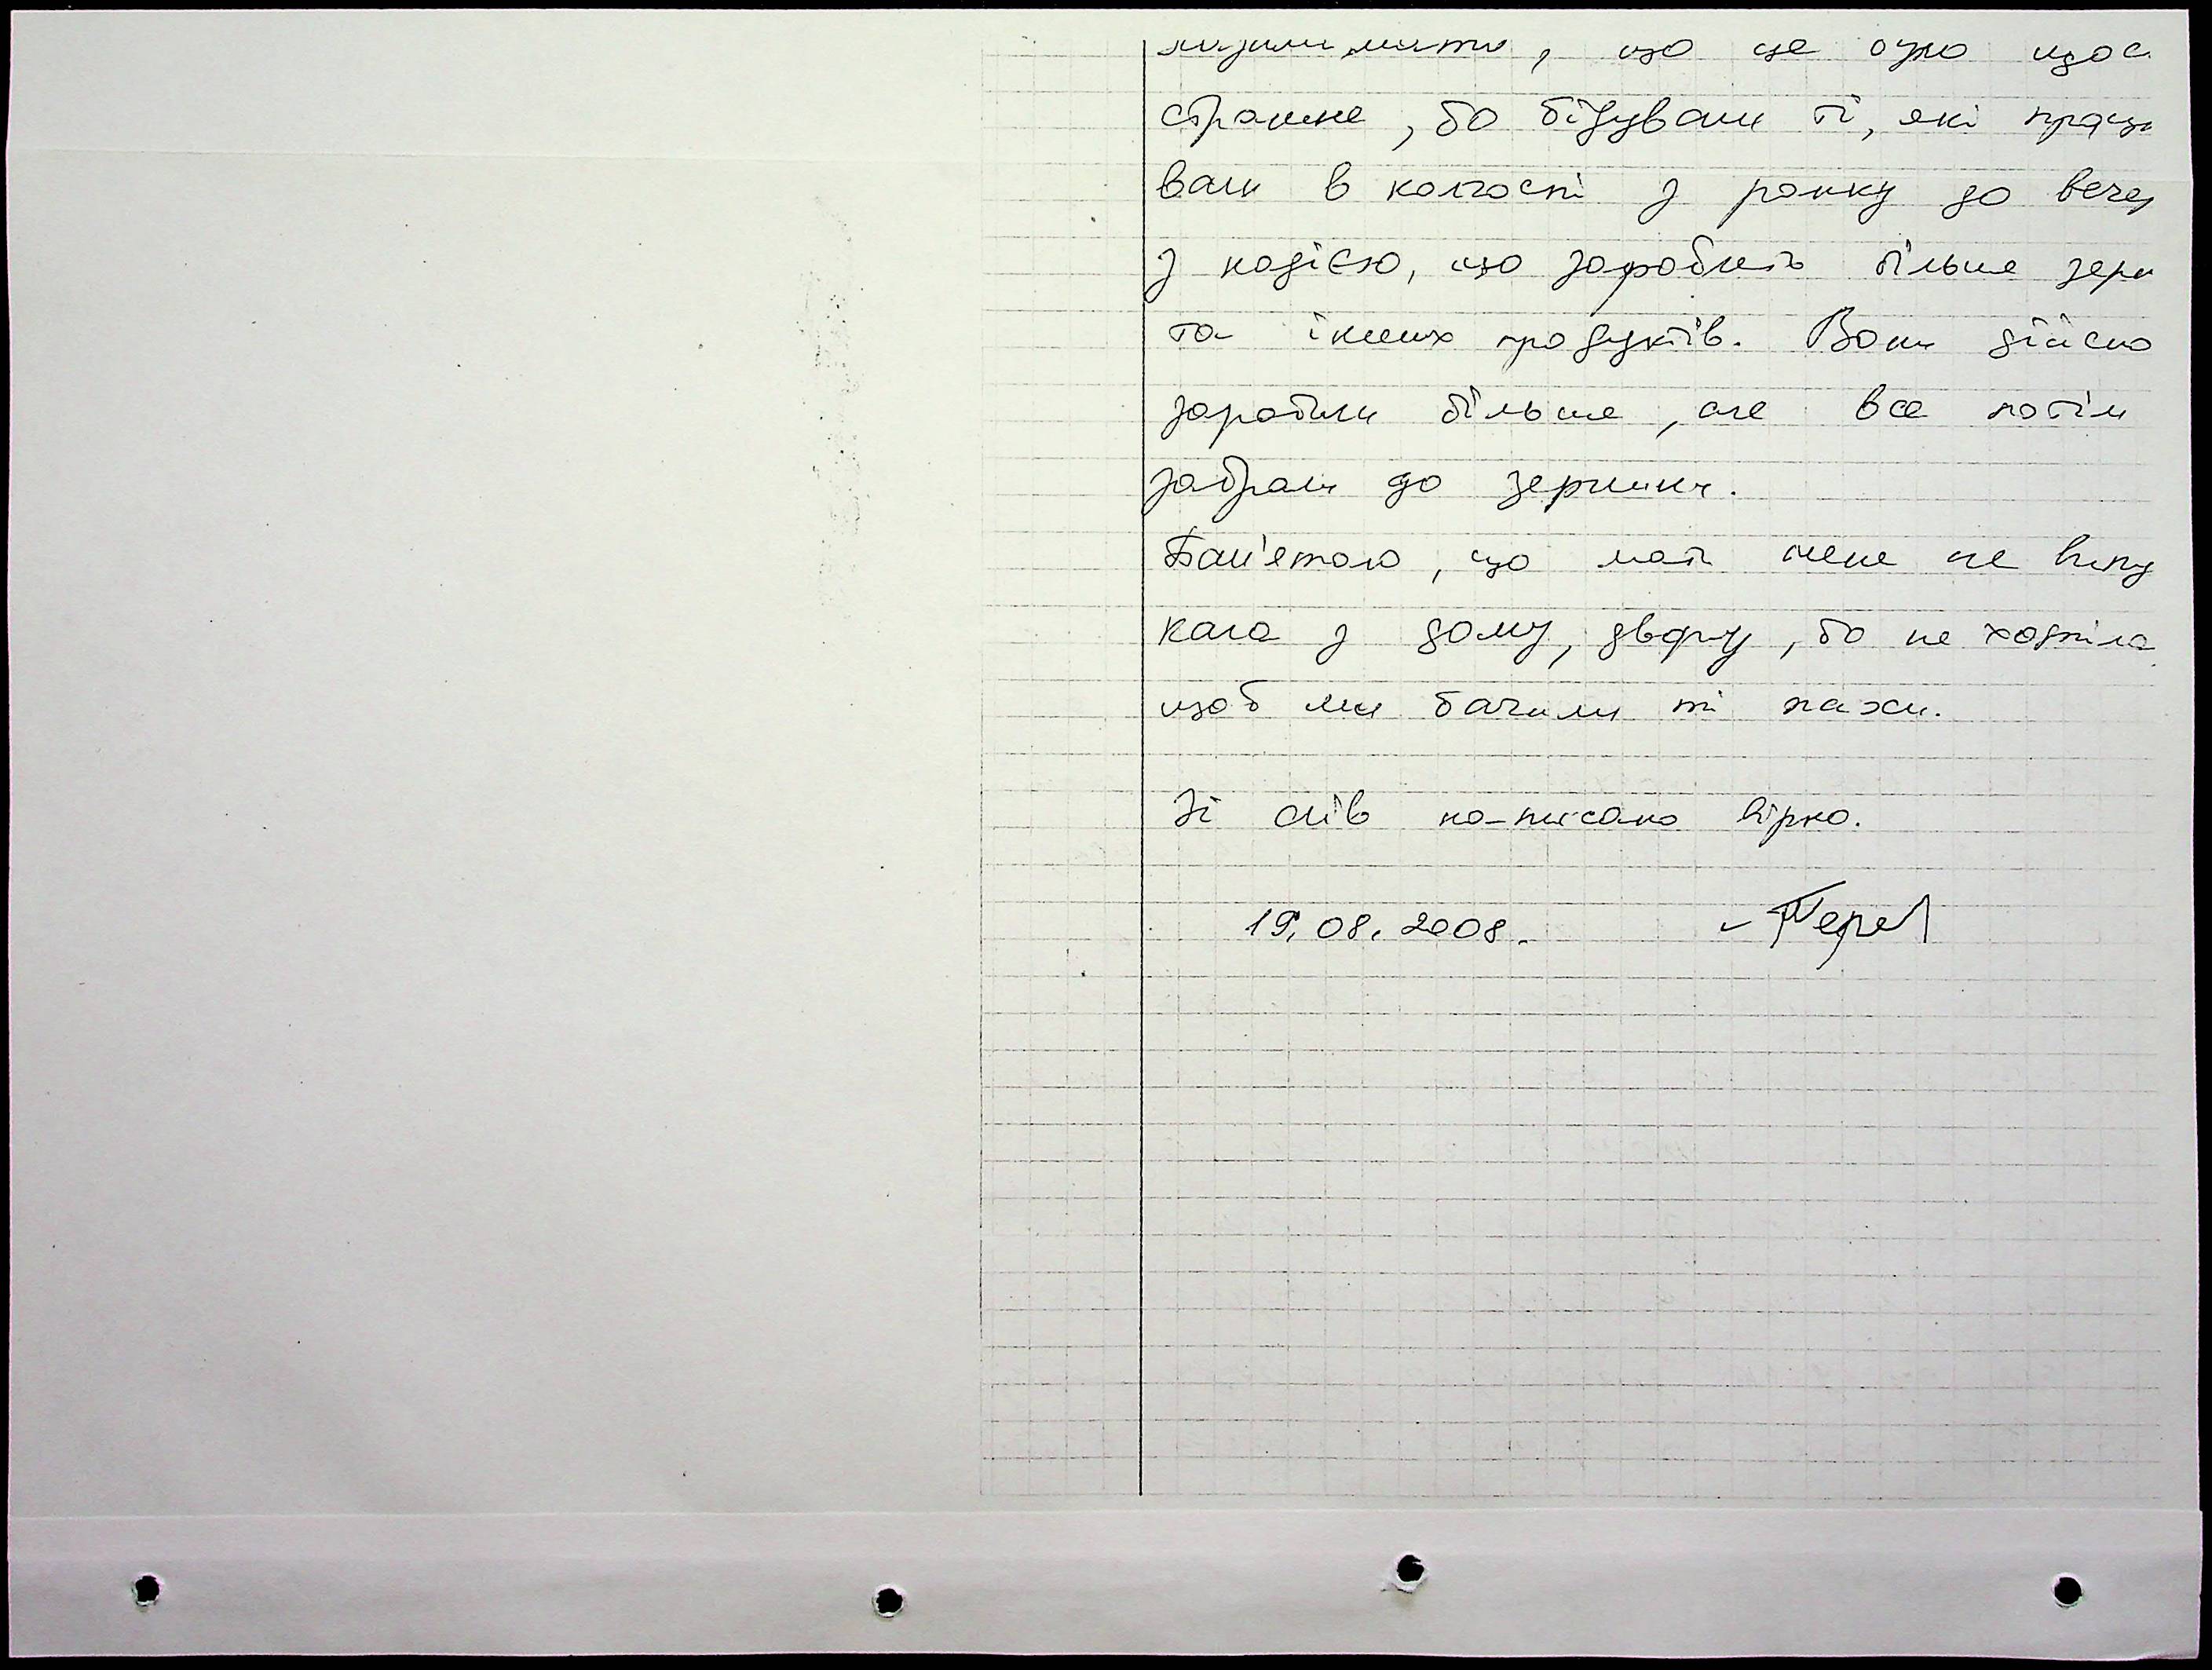 , що це було щос
страшне, бо бідували ті, які працю
вали в колгоспі з ранку до вечо
з надією, що зароблять більше зерн
та інших продуктів. Вони дійсно
заробили більше, але все потім
забрали до зернини.
Пам'ятаю, що мати мене не випу
кала з дому, двору, бо не хотіла
щоб ми бачили ті жахи.
Зі слів на-писано вірно.
19.08.2008.